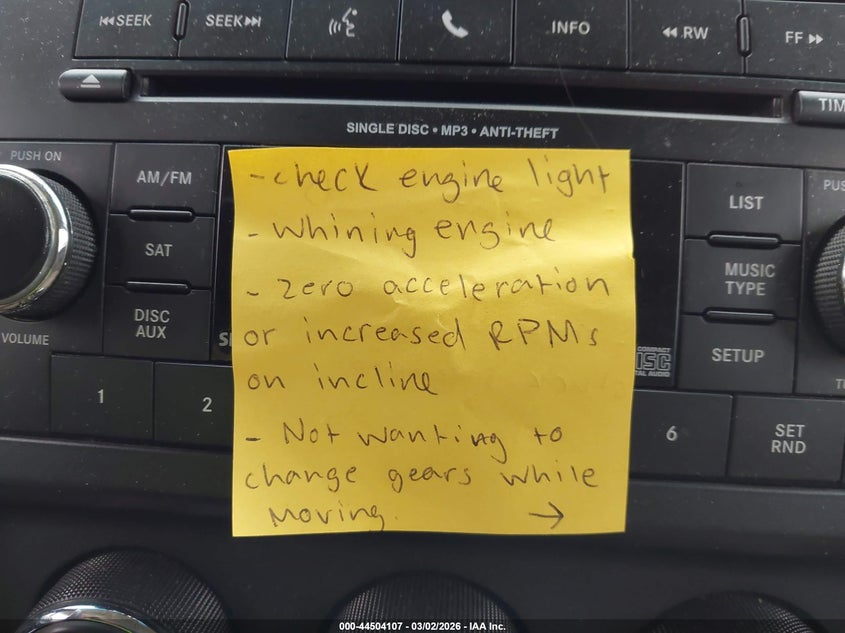 ⏮SEEK SEEK⏭ INFO ◀◀ RW FF ▶▶
SINGLE DISC • MP3 • ANTI-THEFT
PUSH ON
AM/FM
SAT
DISC
AUX
VOLUME
1
2
- check engine light
- whining engine
- zero acceleration
or increased RPMs
on incline
- Not wanting to
change gears while
moving. →
LIST
MUSIC
TYPE
SETUP
6
SET
RND
000-44504107 - 03/02/2026 - IAA Inc.